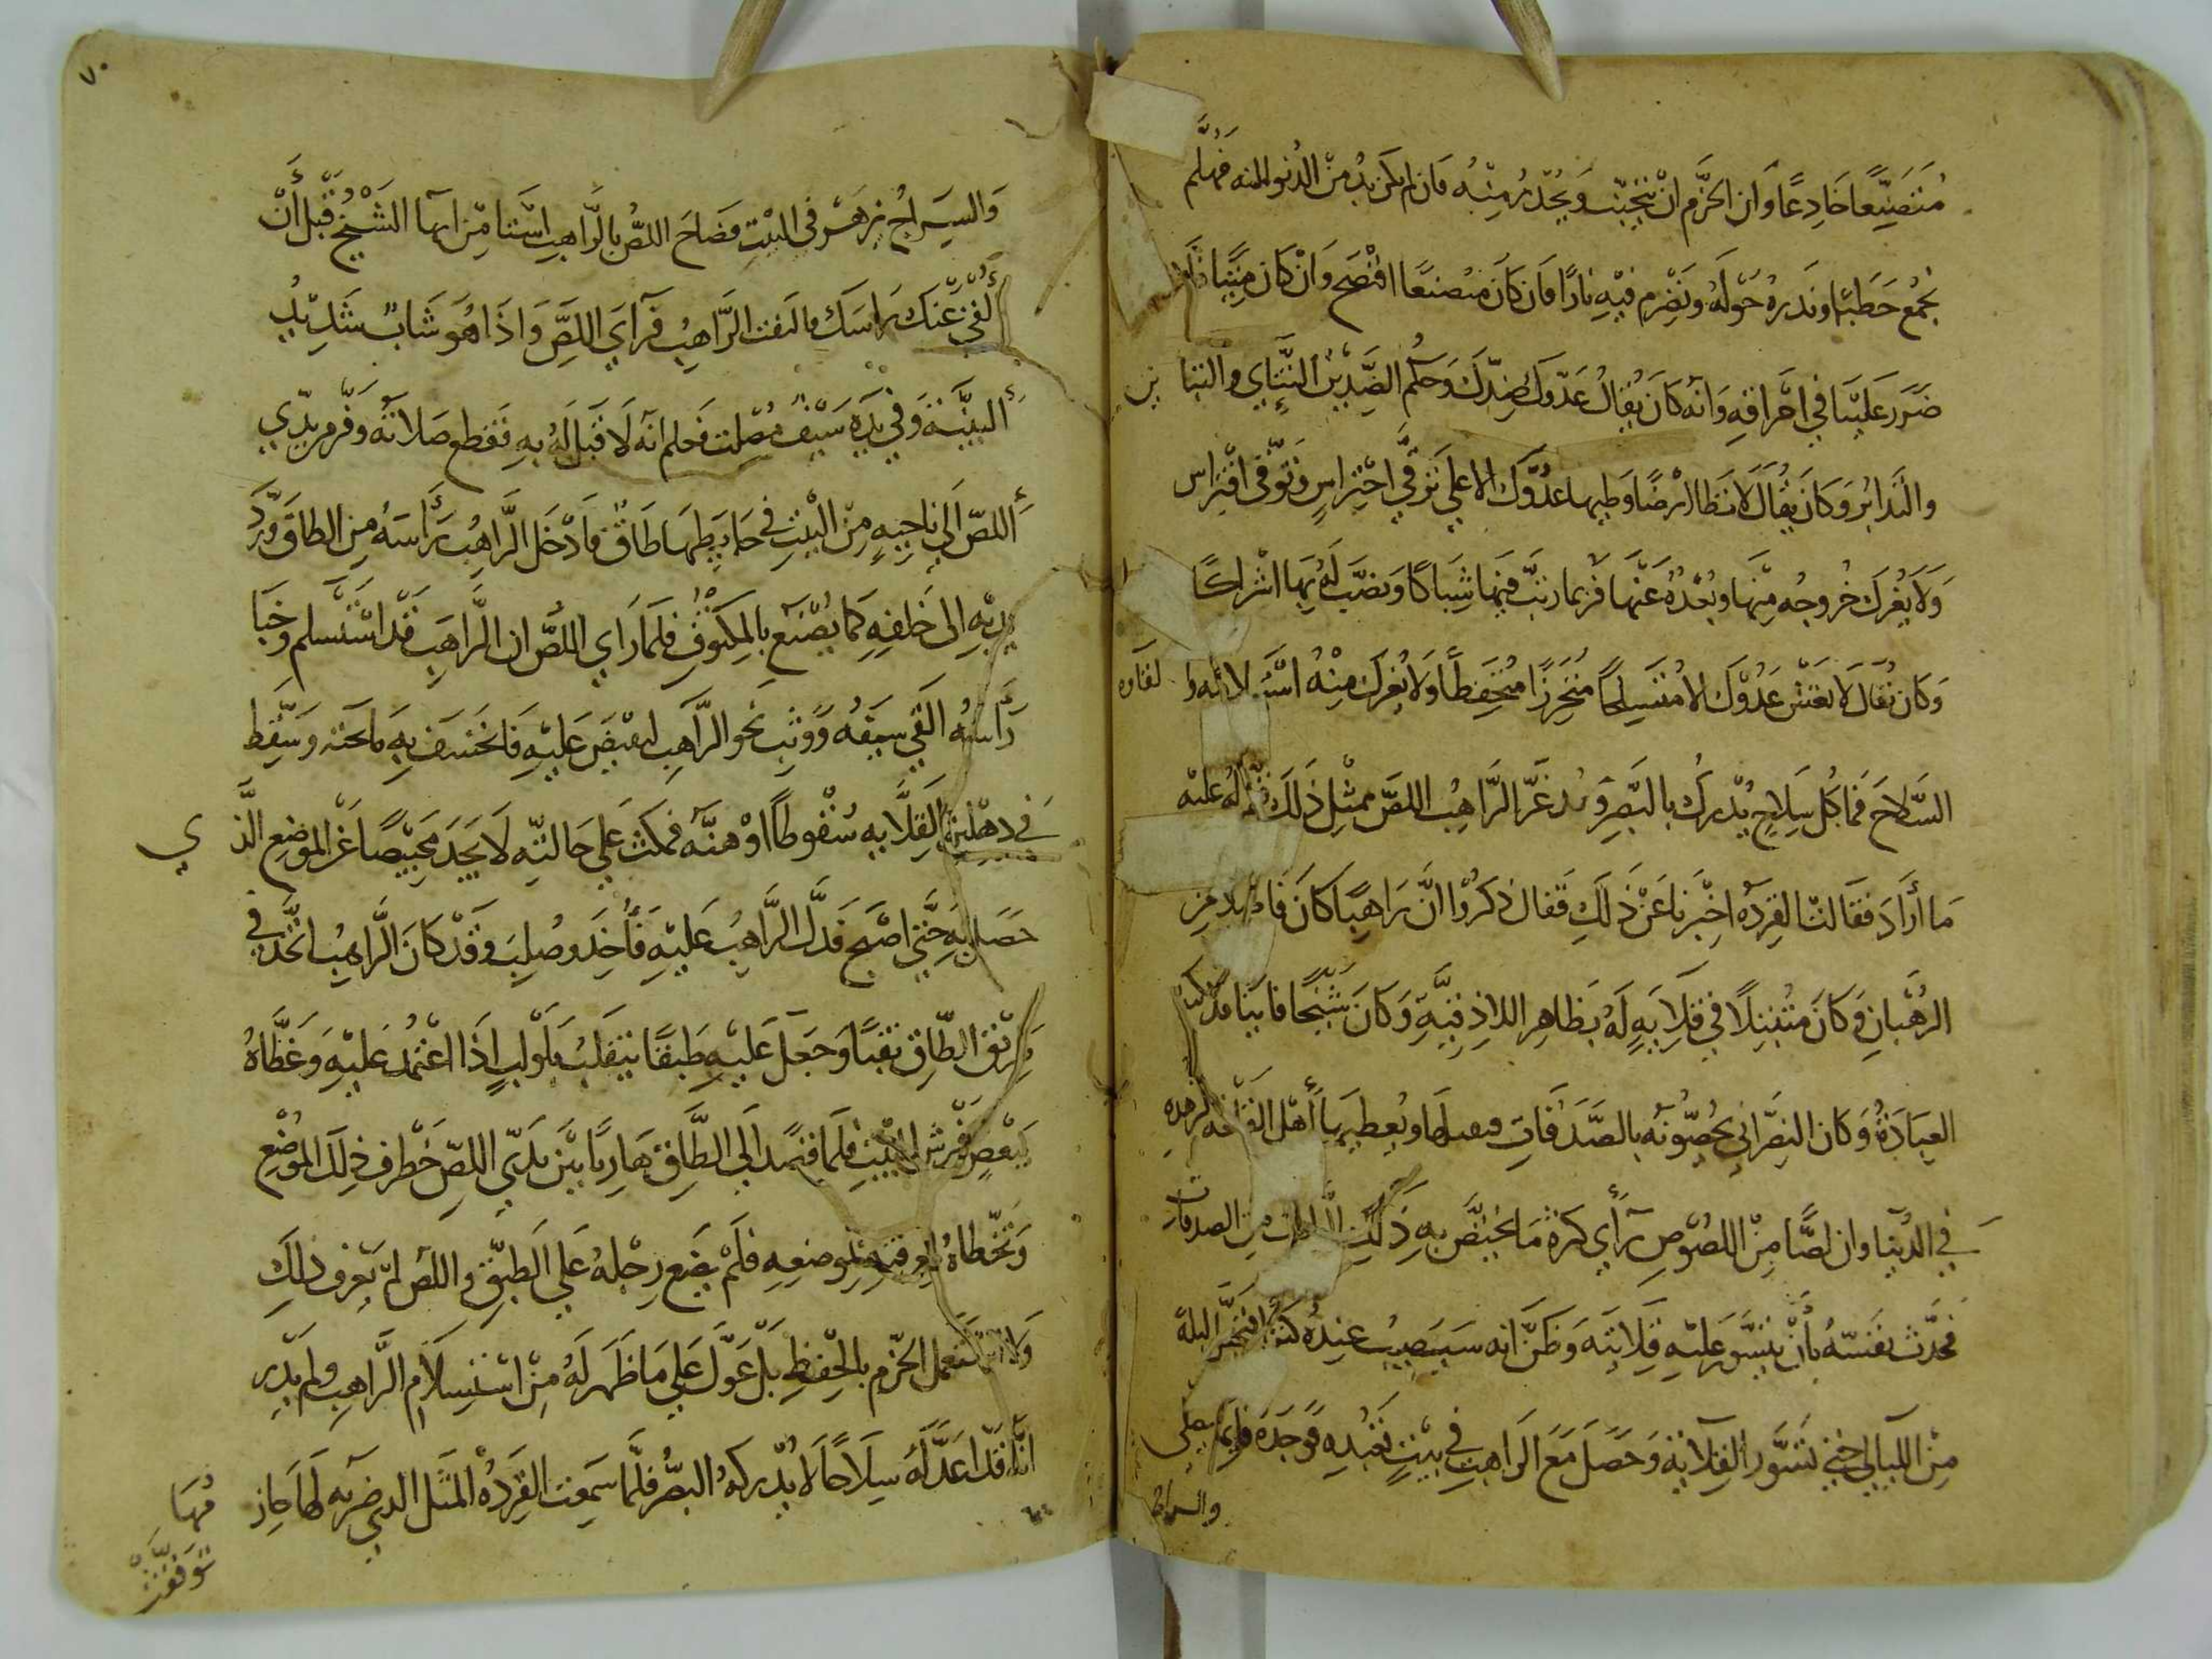 مُتَصَنِّعًا خَادِعًا وَان الحَزْم انْ نتجنبّ وَيُحْذَر مِنْهُ فان لم يكن بدٌ من الدُنو اليه فهَلُمَّ
نجمْع حَطَبًا ونَدره حَوْلَهُ ونضرم فيْهِ نارًا فان كَانَ متصنعًا افتضح وَانْ كَان مَيتًا فلا
ضَرَر عَليَنا في احْراقِهِ وَانه كان يُقالُ عَدّوكَ ضِدّكَ وَحكم الضِدّين التَّنَاي والتبا ين
والتَدابُر وَكانَ يُقَالُ لا تطا ارْضًا وَطيها عَدُوّك الا علي تَوقّي احْتِراسٍ وَتوَقّي افْتِراس
وَلَا يغُرك خُروجُه مِنْهَا وبُعْدُهُ عَنْهَا فرُبما رتبَ فيهَا شِبَاكًا وَنصَب لَك بِهَا اشراكًا
وَكان يُقال لا تغش عَدُوّك الا مُتَسِلحًا مُتَحرزًا مُتَحِفظًا وَلا يُغرك مِنْهُ اسْتسلامه والقاوه
السِّلاحَ فمَا كُل سِلاحٍ يُدْركُ بالبَصر وَقد غَرّ الرّاهِبُ اللصّ بمثْل ذَلَك فتم له عليه
مَا أرَادَ فقالت القِردَه اخْبرنا عَنْ ذَلِكَ فقال ذكرُوا انّ رَاهِبًا كانَ فاضلا من
الرهْبَانِ وَكانَ مُتبَتلًا في قِلايَهٍ لَهُ بظاهِر اللاذقيَّهِ وَكانَ شَيْخًا فانيا قد كبد
العِبَادَةُ وَكان النصَاري يخُصّونَه بالصّدَقاتِ فيقبلهَا ويُعطيهَا أهْل الفاقه لزهده
في الدُنيا وان لصًّا مِنْ اللصُوص رَأَي كثرة مَا يخُصّ به ذَلكَ الراهب من الصدقات
فحدّث نَفسَهُ بأنْ يتسّور عَليْهِ قِلايَتَه وَظنّ انه سَيُصِيبُ عِندَهُ كنزًا فتخير ليلة
مِنْ الليالي حَتّى تسَوّر القِلايَة وَحَصَلَ مَعَ الراهبِ في بيْتٍ تعَبُدهِ فوَجَدَهُ قايمًا يصلي
والسراج
٧٠
وَالسِرَاجُ يزهَر في البيْتِ فصَاحَ اللصُّ بالرَّاهِب استاسِر ايها الشَيْخُ قَبْلَ أنْ
أُلقي عَنك رَاسَك فالتفت الرَّاهِبُ فرَاي اللِصَّ وَاذَا هُوَ شَابٌ شَدِيْدُ
البنْيَة وَفي يَدِهِ سَيْفٌ مُصْلت فعَلم انه لَا قِبَلَ لَهُ بِهِ فقطع صَلاتَه وَفرّ من يَدي
اللصّ الي نَاحِيهٍ مِنْ البيْتِ في حايطهَا طَاقٌ فادْخَل الرَّاهِبُ رَأسَهُ مِن الطاقِ وَردَّ
يديْهِ الى خَلفِهِ كمَا يُصْنَع بالمكتوف فلمَا رَاي اللصُّ ان الراهِبَ قَدْ اسْتسلم وخَبا
رَأسَهُ القي سيْفهُ وَوَثب نَحو الراهِب ليقبضَ عَليْهِ فانخسَف به مَا تحته وَسَقط
في دهْليزِ القلّايه سُقوطًا اوْهنه فمكث عَلي حَالتِهِ لَا يَجدَ مَحِيْصًا عَنْ الموضِع الّذ ي
حَصَل بِه حَتّي اصْبَح فدَلّ الرّاهِبُ عَليْهِ فَأُخِذَ وصُلِبَ وَقَدْ كانَ الرّاهِبُ اتخّذ في
طَرْيق الطّاقِ نقبًا وَجَعَلَ عَليْهِ طَبقًا يتقلبُ بلَوْلبٍ اذَا اعْتمُد عَليْهِ وَغَطّاهُ
ببَعْضِ فَرش البيْتِ فلمَا قصَدَ الي الطّاقِ هَاربًا بَيْن يَدي اللصّ خَطرف ذلكَ الموْضع
وَتَخَطاهُ لمعرفتِهِ بموضعِهِ فلَمْ يضَع رِجْلهُ عَلي الطَبَقِ واللصُ لمْ يَعْرِف ذلكَ
وَلا اسْتعمل الحَزْم بالحِفظِ بَلْ عَوّلَ عَلي مَا ظهَر لَهُ مِنْ اسْتِسلام الرَّاهِب ولم يدْرِ
انّهُ قدْ اعَدَّ لَهُ سِلَاحًا لَا يُدْركهُ البصَرُ فلّمَا سَمِعَت القِرَدُه المَثَل الدي ضربه لَهَا حازِ مُهَا
توَقفَتْ